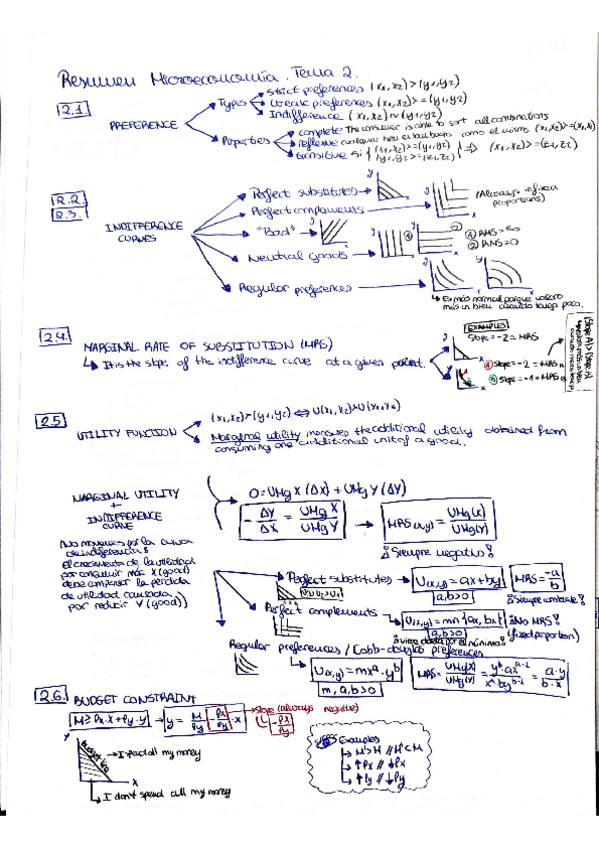 Resumen Microeconomía. Tema 2.
2.1.
PREFERENCE
Types
strict preferences (x1,x2)>(y1,y2)
Weak preferences (x1,x2)>=(y1,y2)
Indifference (x1,x2)~(y1,y2)
Properties
complete The consumer is able to sort all combinations
reflexive cualquier bien es tan bueno como él mismo (x1,x2)>=(x1,x2)
transitive si { (x1,x2)>=(y1,y2) (y1,y2)>=(z1,z2) } => (x1,x2)>=(z1,z2)
2.2.
2.3.
INDIFFERENCE
CURVES
Perfect substitutes
Perfect complements
(Always in fixed
proportions)
"Bad"
Neutral goods
① RMS=∞
② RMS=0
Regular preferences
↳ Es más normal porque valoro
más un bien cuando tengo poca.
2.4.
MARGINAL RATE OF SUBSTITUTION (MRS)
↳ It is the slope of the indifference curve at a given point.
EXAMPLES
Slope=-2=MRS
Slope=-2=MRS
2.5
UTILITY FUNCTION
(x1,x2)>(y1,y2) ⇔ U(x1,x2)>U(y1,y2)
Marginal utility measures the additional utility obtained from
consuming one additional unit of a good.
MARGINAL UTILITY
+
INDIFFERENCE
CURVE
0=UMgX(ΔX)+UMgY(ΔY)
-ΔY/ΔX = UMgX/UMgY
MRS(x,y)=UMg(x)/UMg(y)
¡Siempre negativo!
No movemos por la curva
de indiferencia:
el crecimiento de la utilidad
por consumir más X(good)
debe compensar la pérdida
de utilidad causada
por reducir Y(good))
Perfect substitutes
U(x,y)=ax+by
a,b>0
MRS=-a/b
¡Siempre constante!
Perfect complements
U(x,y)=min{ax,bx}
a,b>0
¡NO MRS!
(fixed proportion)
¡viene dada por el mínimo!
Regular preferences / Cobb-douglas preferences
U(x,y)=mx^a·y^b
m,a,b>0
MRS=UMg(x)/UMg(y)=y^b·ax^a-1/x^a·by^b-1=a·y/b·x
2.6.
BUDGET CONSTRAINT
M≥Px·X+Py·Y
y=M/Py-Px/Py·x
slope (always negative)
-Px/Py
Budget line
I spend all my money
I don't spend all my money
Examples
↳ M'>M // M'<M
↳ ↑Px // ↓Px
↳ ↑Py // ↓Py